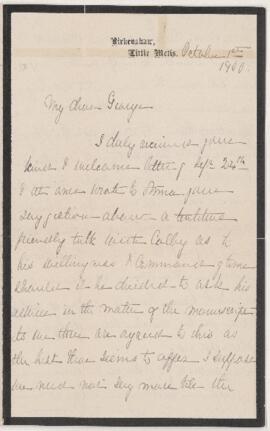 Birkenshaw,
Little Metis. October 1st
1900.
My dear George
I duly received your
kind & welcome letter of Sept 24th
I at once wrote to Anna your
suggestion about a tentative
friendly talk with Colby as to
his willingness & command of time
should it be decided to ask his
advice in the matter of the manuscripts
to me three are agreed to this as
the best that seems to offer. I suppose
we need not say more till the